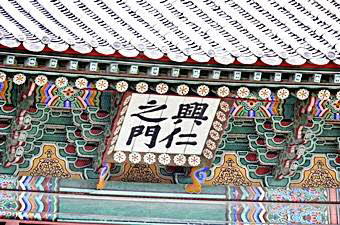 興仁
之門